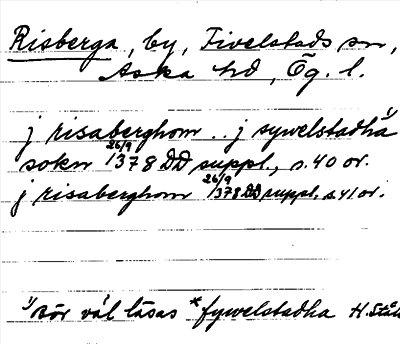 Risberga, by, Fivelstads sn,
Aska hd, Ög. l.
j risaberghom .. j sywelstadha 1)
sokn 26/9 1378 DD suppl., s. 40 or.
j risaberghom 26/9 1378 DD suppl. s. 41 or.
1) Bör väl läsas *fywelstadha H. Ståhl